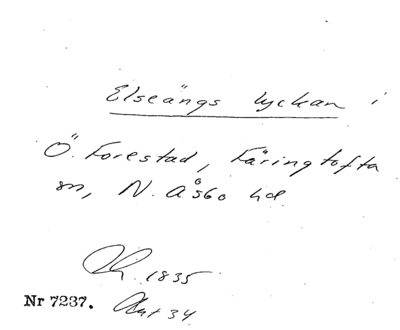 Elseängs lyckan i
Ö. Forestad, Färingtofta
sn, N. Åsbo hd
1835
Nr 7237. Akt 34